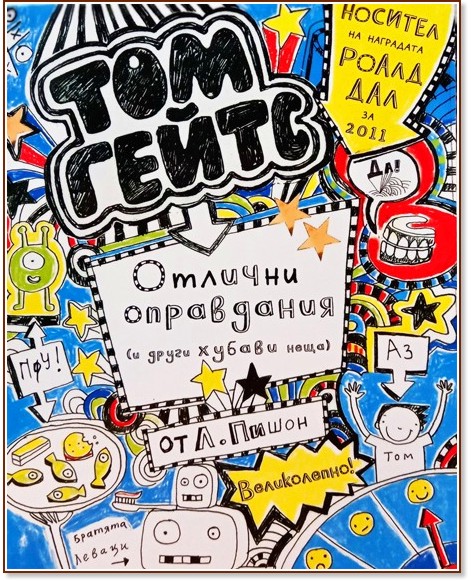 НОСИТЕЛ
НА НАГРАДАТА
РОАЛД
ДАЛ
ЗА
2011
ТОМ
ГЕЙТС
ДА!
Отлични
оправдания
(и други хубави неща)
ПФУ!
АЗ
от Л. Пишон
Том
Великолепно!
Братята
Леваци